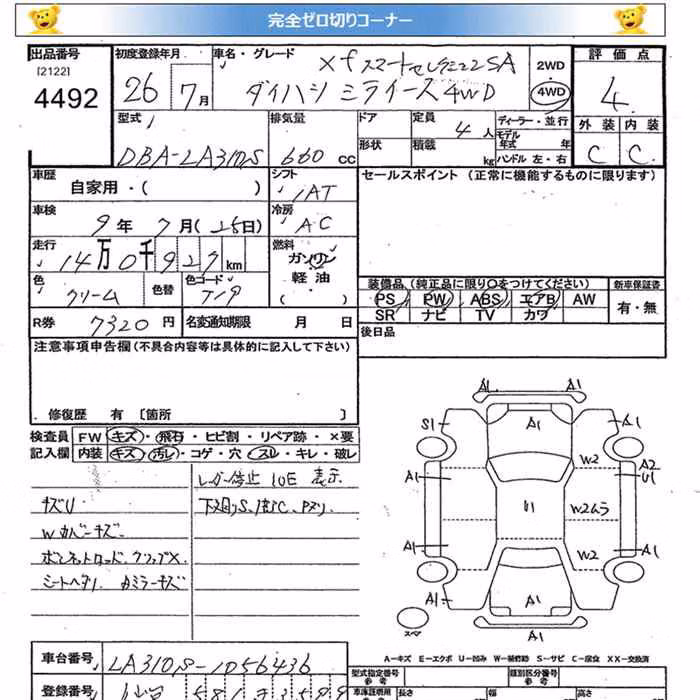 完全ゼロ切りコーナー
出品番号 初度登録年月 車名・グレード 2WD 評価点
[2122] xf スマートセレクション SA
4492 26 7月 ダイハツ ミライース 4WD 4WD 4
型式 排気量 ドア 定員 4人 ディーラー・並行 モデル 年式 年 外装 内装
DBA-LA310S 660cc 形状 積載 kg ハンドル 左・右 C C
車歴 自家用・( ) シフト IAT セールスポイント(正常に機能するものに限ります)
車検 9年7月(25日) 冷房 AC
走行 14万0千927km 燃料 ガソリン
軽油
( )
色 クリーム 色替 色コード T19 装備品(純正品に限り〇をつけてください) 新車保証書
PS PW ABS エアB AW 有・無
SR ナビ TV カワ
R券 7320円 名変通知期限 月 日 後日品
注意事項申告欄(不具合内容等は具体的に記入して下さい)
修復歴 有 〔箇所 〕
検査員 FW キズ・飛石・ヒビ割・リペア跡・×要
記入欄 内装 キズ・汚レ・コゲ・穴・スレ・キレ・破レ
表示
キズU 下廻りS、
Wカバーキズ
ボンネットロッド、クリップX
シートヘタリ
A1 A1
S1 A1 A1
W2 A2
A1 U1 U1
W2ムラ
A1 W2 A1
A1 A1 A1
スペア
A1
A-キズ E-エクボ U-凹み W-補修跡 S-サビ C-腐食 XX-交換済
車台番号 LA310S-1056436 型式指定番号 類別区分番号
参考 参考
登録番号 車庫証明用 長さ 幅 高さ